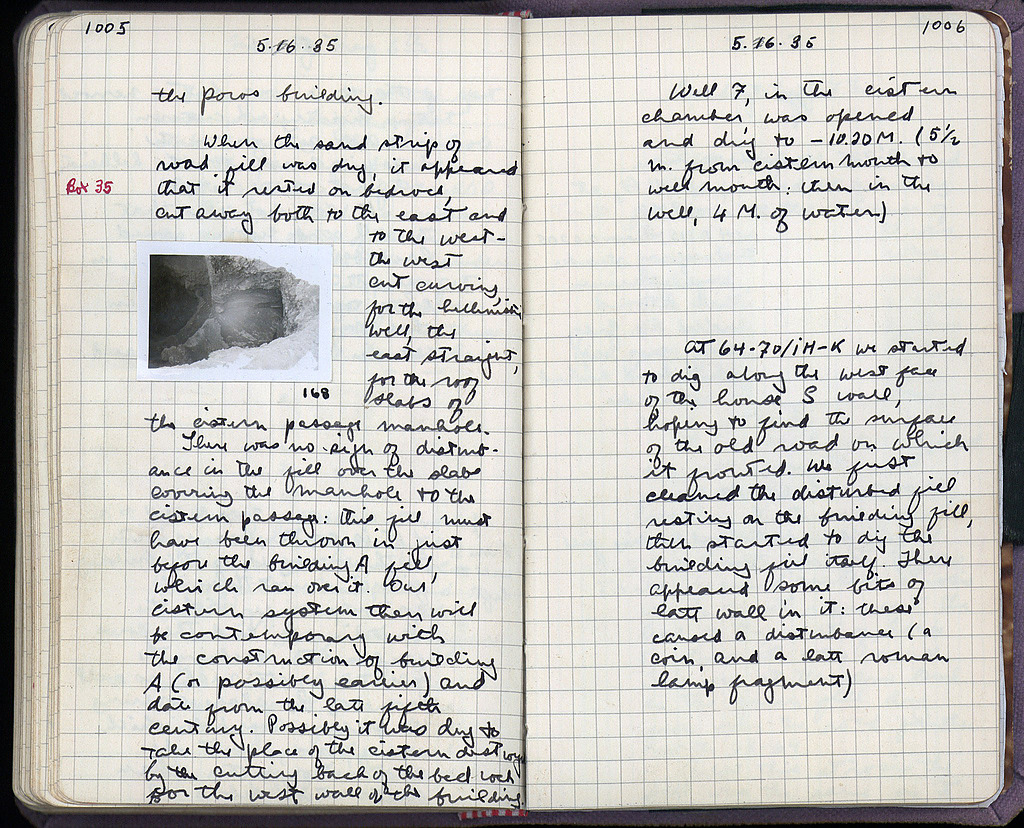 1005
5.16.35
the poros building.
When the sand strip of
road fill was dug, it appeared
Box 35
that it rested on bedrock,
cut away both to the east and
to the west -
the west
cut curving,
for the hellenistic
well, the
east straight,
for the roof
slabs of
168
the cistern passage manhole.
There was no sign of disturb-
ance in the fill over the slabs
covering the manhole to the
cistern passage: this fill must
have been thrown in just
before the building A fell,
which ran over it. Our
cistern system then will
be contemporary with
the construction of building
A (or possibly earlier) and
date from the late fifth
century. Possibly it was dug to
take the place of the cistern destroyed
by the cutting back of the bed rock
for the west wall of the building.
1006
5.16.35
Well 7, in the cistern
chamber, was opened
and dug to -10.20 M. (5 1/2
m. from cistern mouth to
well mouth: then in the
well, 4 M. of water)
At 64-70/ΙΗ-Κ we started
to dig along the west face
of the house S wall,
hoping to find the surface
of the old road on which
it fronted. We first
cleaned the disturbed fill
resting on the building fill,
then started to dig the
building fill itself. There
appeared some bits of
late wall in it: these
caused a disturbance (a
coin, and a late roman
lamp fragment)